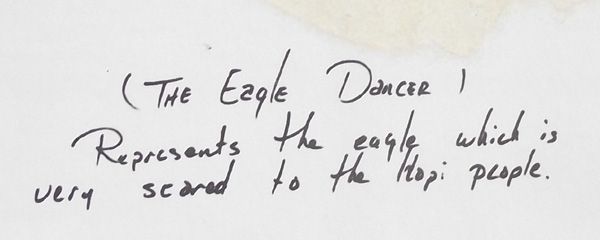 (THE Eagle DANCER)
Represents the eagle which is
very scared to the Hopi people.